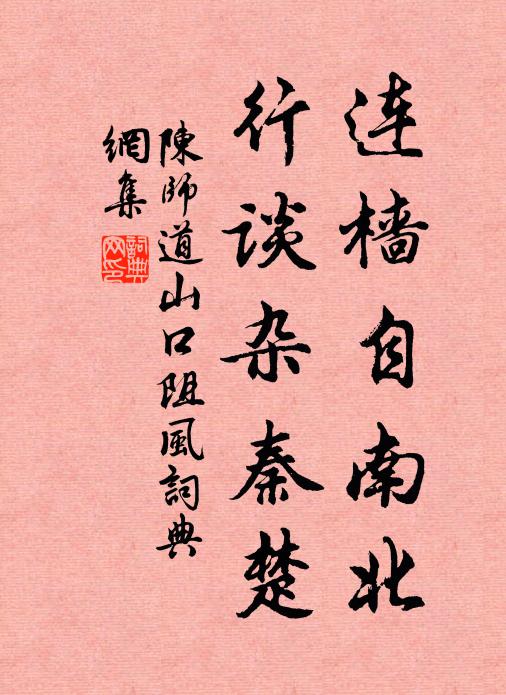 连樯自南北
行谈杂秦楚
陳師道山口阻風詞典
網集
詞典
网印